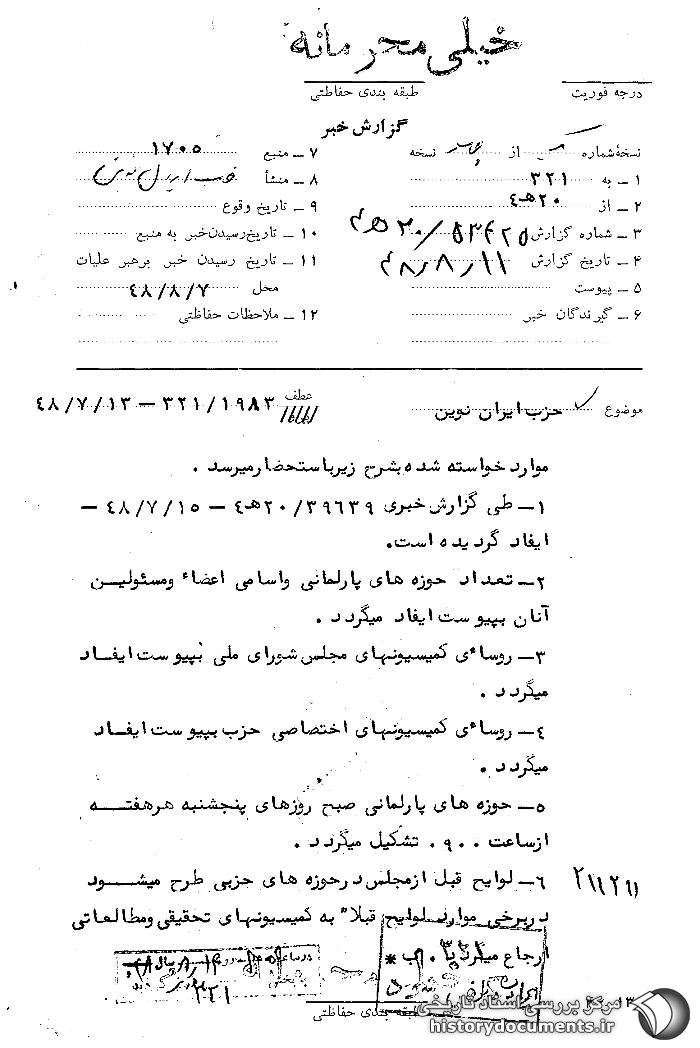 خیلی محرمانه
درجه فوریت
طبقه بندی حفاظتی
گزارش خبر
نسخهٔ شماره از نسخه
۱ – به ۳۲۱
۲ – از ۲۰ ه‍ ٤
۳ – شماره گزارش
۴ – تاریخ گزارش ۴۸/۸/۱۱
۵ – پیوست
۶ – گیرندگان خبر
۷ – منبع ۱۷۰۵
۸ – منشأ حزب ایران نوین
۹ – تاریخ وقوع
۱۰ – تاریخ رسیدن خبر به منبع
۱۱ – تاریخ رسیدن خبر برهبر عملیات
محل ٤۸/۸/۷
۱۲ – ملاحظات حفاظتی
موضوع حزب ایران نوین
عطف ۳۲۱/۱۹۸۳ – ٤۸/۷/۱۳
موارد خواسته شده بشرح زیر باستحضار میرسد .
۱– طی گزارش خبری ۲۰/۳۹٦۳۹ه‍ ٤ – ٤۸/۷/۱۵ –
ایفاد گردیده است.
۲– تعداد حوزه های پارلمانی واسامی اعضاء ومسئولین
آنان بپیوست ایفاد میگردد .
۳– روساءی کمیسیونهای مجلس شورای ملی بپیوست ایفاد
میگردد .
٤– روساءی کمیسیونهای اختصاصی حزب بپیوست ایفاد
میگردد .
۵– حوزه های پارلمانی صبح روزهای پنجشنبه هرهفته
ازساعت ۹۰۰ تشکیل میگردد .
٦– لوایح قبل ازمجلس درحوزه های حزبی طرح میشود
دربرخی موارد لوایح قبلا" به کمیسیونهای تحقیقی ومطالعاتی
ارجاع میگردد
۳۲۱
طبقه بندی حفاظتی
مرکز بررسی اسناد تاریخی
historydocuments.ir